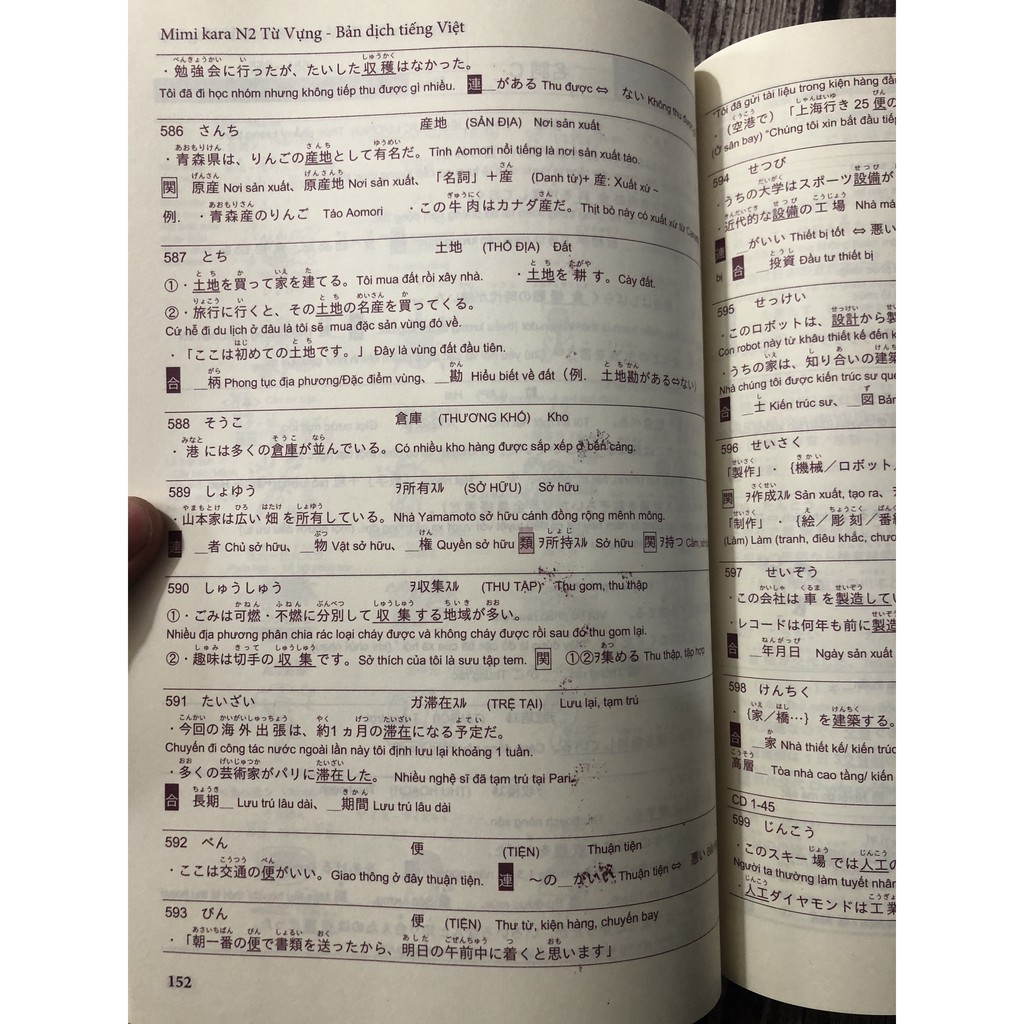 Mimi kara N2 Từ Vựng - Bản dịch tiếng Việt
べんきょうかい い しゅうかく
・勉強会に行ったが、たいした収穫はなかった。
Tôi đã đi học nhóm nhưng không tiếp thu được gì nhiều. 連 __がある Thu được ⇔ ない Không thu được
586 さんち 産地 (SẢN ĐỊA) Nơi sản xuất
あおもりけん さんち ゆうめい
・青森県は、りんごの産地として有名だ。Tỉnh Aomori nổi tiếng là nơi sản xuất táo.
げんさん げんさんち さん
関 原産 Nơi sản xuất、原産地 Nơi sản xuất、「名詞」+産 (Danh từ)+ 産: Xuất xứ ~
あおもりさん ぎゅうにく さん
例. ・青森産のりんご Táo Aomori ・この牛肉はカナダ産だ。Thịt bò này có xuất xứ từ
587 とち 土地 (THỔ ĐỊA) Đất
とち か いえ た とち たがや
①・土地を買って家を建てる。Tôi mua đất rồi xây nhà. ・土地を耕す。Cày đất.
りょこう い とち めいさん か
②・旅行に行くと、その土地の名産を買ってくる。
Cứ hễ đi du lịch ở đâu là tôi sẽ mua đặc sản vùng đó về.
はじ とち
・「ここは初めての土地です。」Đây là vùng đất đầu tiên.
がら かん とちかん
合 __柄 Phong tục địa phương/Đặc điểm vùng、__勘 Hiểu biết về đất (例. 土地勘がある⇔ない)
588 そうこ 倉庫 (THƯƠNG KHỐ) Kho
みなと そうこ なら
・港には多くの倉庫が並んでいる。Có nhiều kho hàng được sắp xếp ở bến cảng.
589 しょゆう ヲ所有ｽﾙ (SỞ HỮU) Sở hữu
やまもとけ ひろ はたけ しょゆう
・山本家は広い畑を所有している。Nhà Yamamoto sở hữu cánh đồng rộng mênh mông.
しゃ ぶつ けん しょじ
連 __者 Chủ sở hữu、__物 Vật sở hữu、__権 Quyền sở hữu 類 ヲ所持ｽﾙ Sở hữu 関 ヲ持つ
590 しゅうしゅう ヲ収集ｽﾙ (THU TẬP) Thu gom, thu thập
かねん ふねん ぶんべつ しゅうしゅう ちいき おお
①・ごみは可燃・不燃に分別して収集する地域が多い。
Nhiều địa phương phân chia rác loại cháy được và không cháy được rồi sau đó thu gom lại.
しゅみ きって しゅうしゅう あつ
②・趣味は切手の収集です。Sở thích của tôi là sưu tập tem. 関 ①②ヲ集める Thu thập, tập hợp
591 たいざい ガ滞在ｽﾙ (TRỆ TẠI) Lưu lại, tạm trú
こんかい かいがいしゅっちょう やく げつ たいざい よてい
・今回の海外出張は、約1ヵ月の滞在になる予定だ。
Chuyến đi công tác nước ngoài lần này tôi định lưu lại khoảng 1 tuần.
おお げいじゅつか たいざい
・多くの芸術家がパリに滞在した。 Nhiều nghệ sĩ đã tạm trú tại Pari.
ちょうき きかん
合 長期__ Lưu trú lâu dài、__期間 Lưu trú lâu dài
592 べん 便 (TIỆN) Thuận tiện
こうつう べん
・ここは交通の便がいい。Giao thông ở đây thuận tiện. 連 ～の__がいい Thuận tiện ⇔ 悪い
593 びん 便 (TIỆN) Thư từ, kiện hàng, chuyến bay
あさいちばん びん しょるい おく あした ごぜんちゅう つ おも
・「朝一番の便で書類を送ったから、明日の午前中に着くと思います」
152
"Tôi đã gửi tài liệu trong kiện hàng đầu
くうこう しゃんはいゆ びん
・(空港で)「上海行き 25 便の
(Ở sân bay) "Chúng tôi xin bắt đầu tiếp
594 せつび
だいがく せつび
・うちの大学はスポーツ設備が
きんだいてき せつび こうじょう
・近代的な設備の工場 Nhà má
連 __がいい Thiết bị tốt ⇔ 悪い
とうし
bị 合 __投資 Đầu tư thiết bị
595 せっけい
せっけい
・このロボットは、設計から製
Con robot này từ khâu thiết kế đến k
いえ し あ けんち
・うちの家は、知り合いの建築
Nhà chúng tôi được kiến trúc sư que
し ず
合 __士 Kiến trúc sư、__図 Bản
596 せいさく
せいさく きかい
「製作」・{機械／ロボット
さくせい
関 ヲ作成ｽﾙ Sản xuất, tạo ra、
せいさく え ちょうこく ばん
「制作」・{絵／彫刻／番組
(Làm) Làm (tranh, điêu khắc, chươ
597 せいぞう
かいしゃ くるま せいぞう
・この会社は車を製造してい
なんねん まえ せいぞ
・レコードは何年も前に製造
ねんがっぴ
合 __年月日 Ngày sản xuất
598 けんちく
いえ はし けんちく
・{家／橋…}を建築する。
か
合 __家 Nhà thiết kế/ kiến trúc
こうそう
高層__ Tòa nhà cao tầng/ kiến
CD 1-45
599 じんこう
じょう じんこう
・このスキー場では人工の
Người ta thường làm tuyết nhân
じんこう こうぎょ
・人工ダイヤモンドは工業